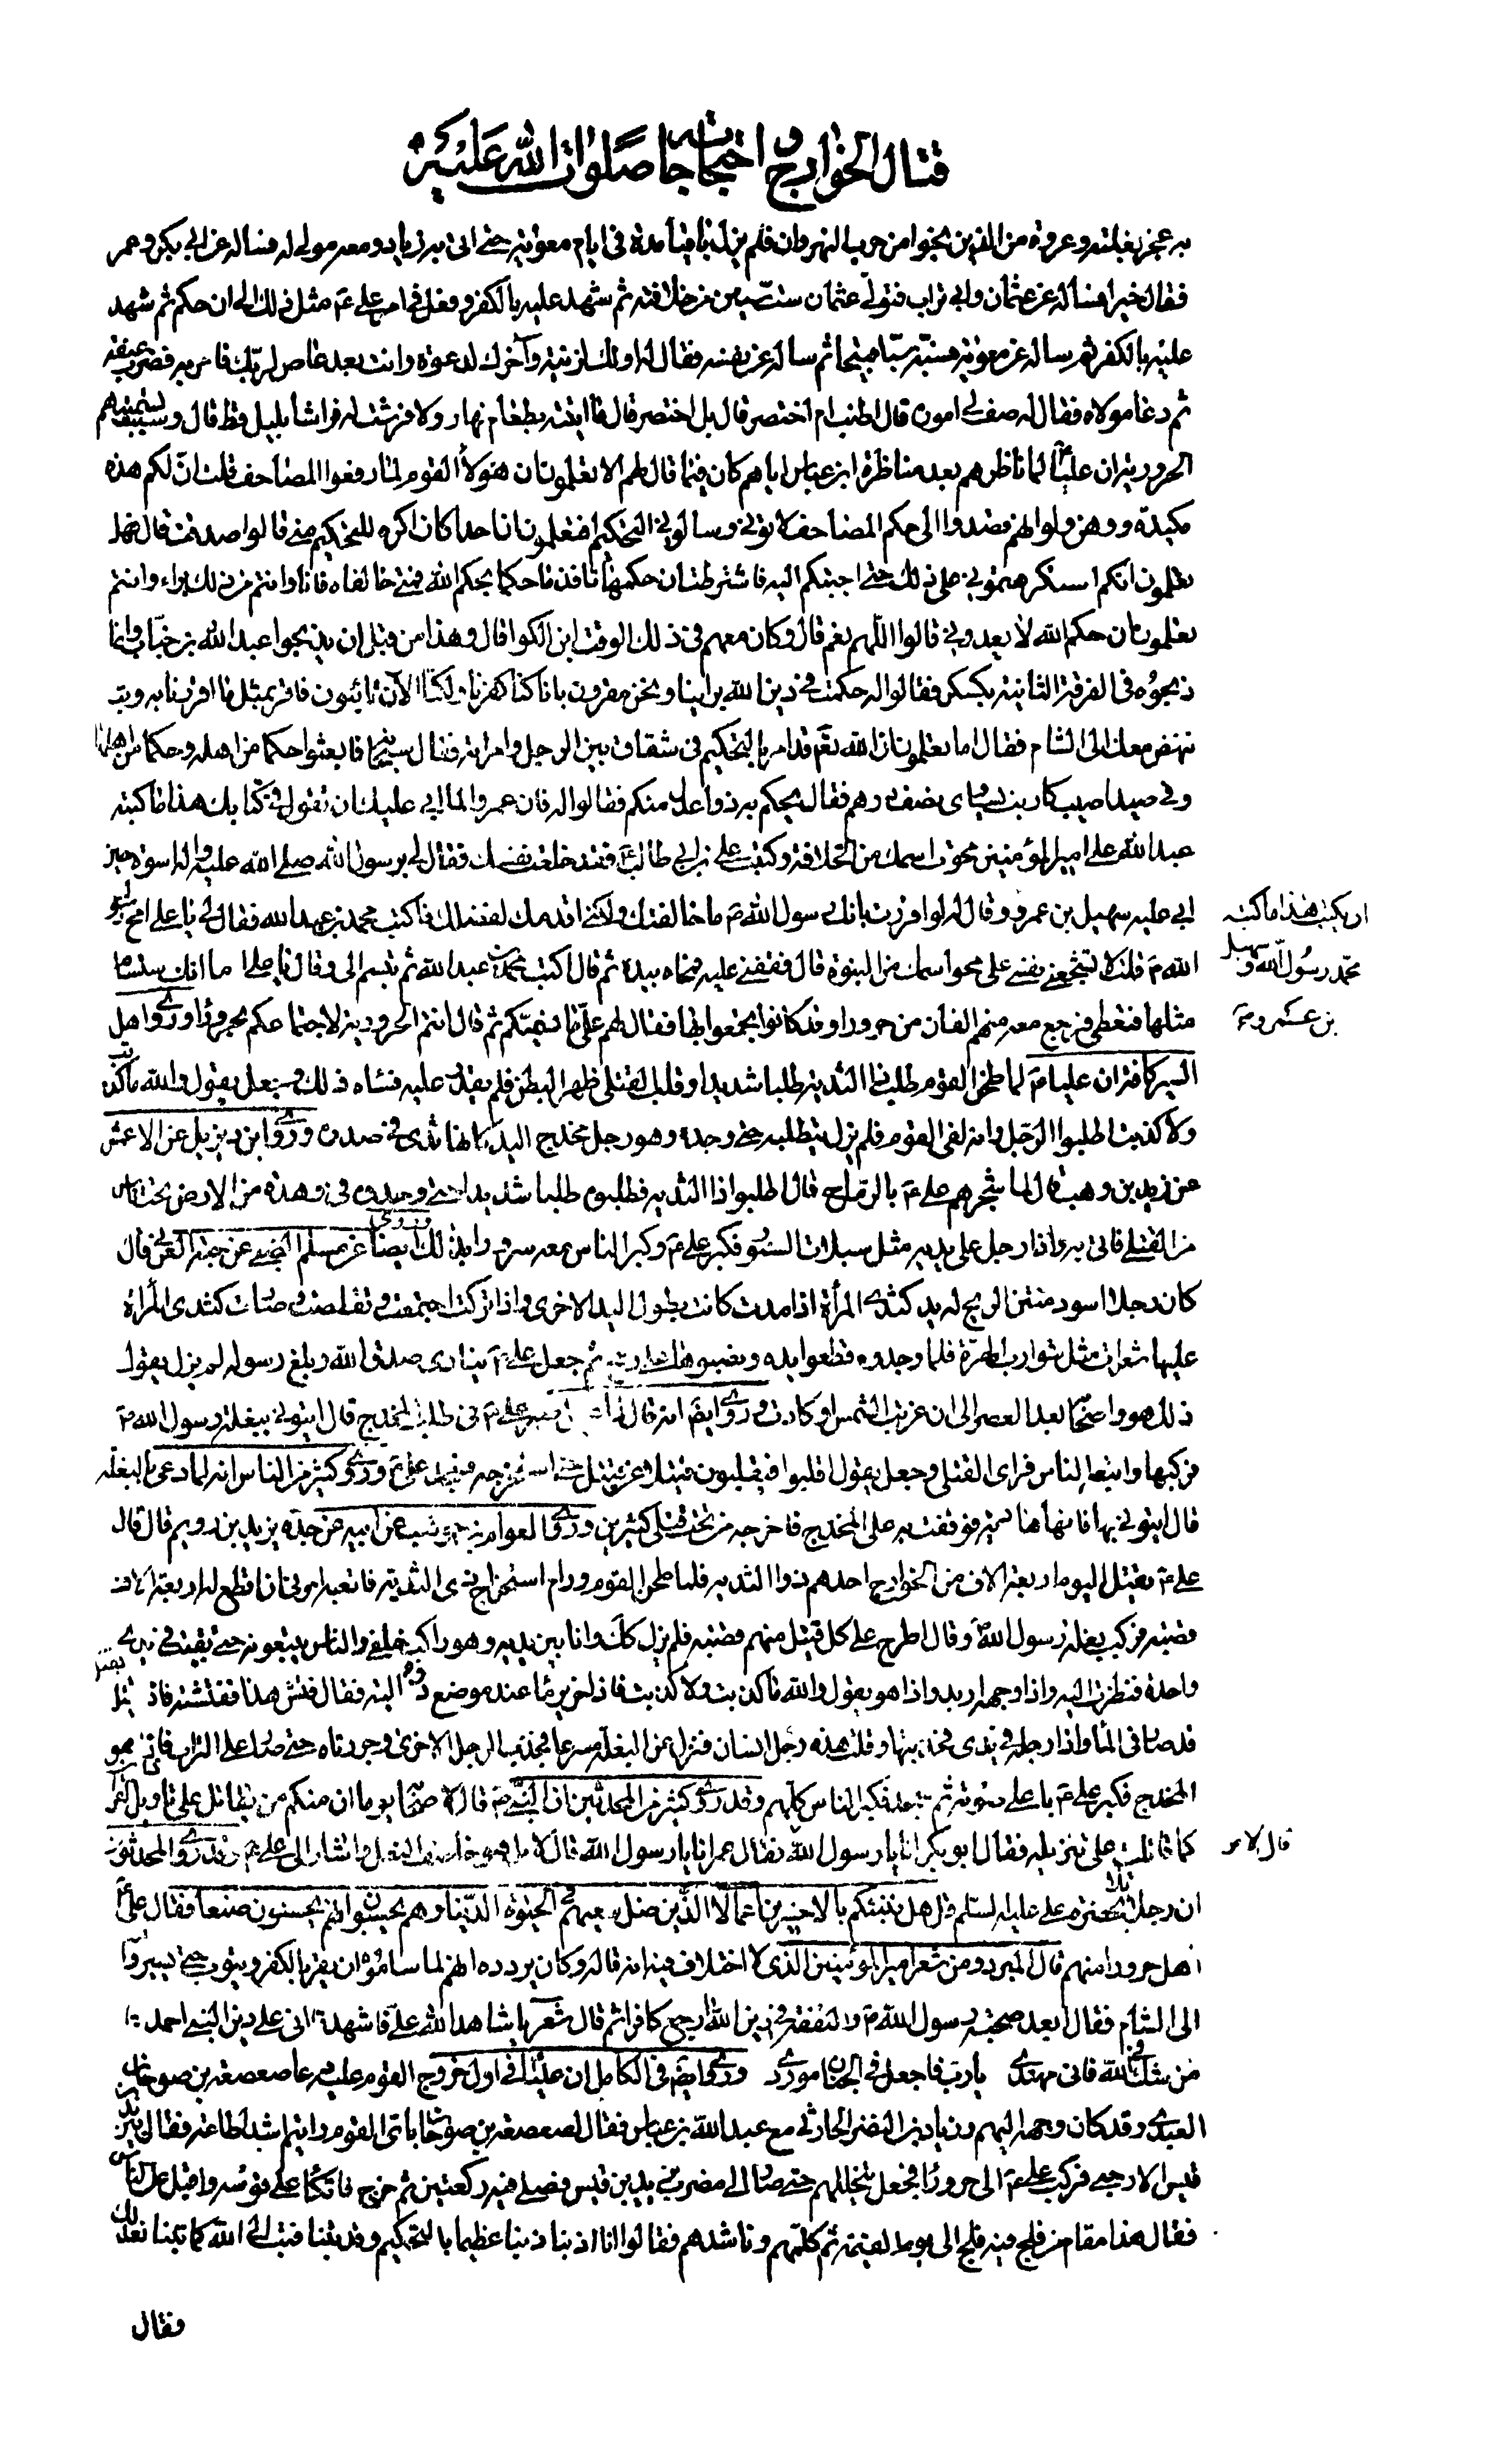 قتال الخوارج واحتجاجاته صلوات الله عليه
به عجز بغلته وعروة من الذين نجوا من حرب النهروان فلم يزل باقيا مدة في ايام معوية حتى اتى به زياد ومعه مولى له فسأله عن ابي بكر وعمر
فقال خيرا فسأله عن عثمان وابي تراب فتولى عثمان ست سنين من خلافته ثم شهد عليه بالكفر وفعل في امر علي ع مثل ذلك الى ان حكم ثم شهد
عليه بالكفر ثم سأله عن معوية فسبه سبا قبيحا ثم سأله عن نفسه فقال له اولك لزنية وآخرك لدعوة وانت بعد عاص لربك فامر به فضرب عنقه
ثم دعا مولاه فقال له صف لي اموره قال اطنب ام اختصر قال بل اختصر قال ما اتيته بطعام نهار ولا فرشت له فراشا بليل قط قال وسبب تسميتهم
الحرورية ان عليا لما ناظرهم بعد مناظرة ابن عباس اياهم كان فيما قال لهم الا تعلمون ان هؤلاء القوم لما رفعوا المصاحف قلت ان لكم هذه
مكيدة ووهن ولو انهم قصدوا الى حكم المصاحف لاتوني وسألوني التحكيم افتعلمون ان احدا كان اكره للتحكيم مني قالوا صدقت قال فهل
تعلمون انكم استكرهتموني على ذلك حتى اجبتكم اليه فاشترطت ان حكمهما نافذ ما حكما بحكم الله فمتى خالفاه فانا وانتم من ذلك براء وانتم
تعلمون ان حكم الله لا يعدوني قالوا اللهم نعم قال وكان معهم في ذلك الوقت ابن الكوا قال وهذا من قبل ان يذبحوا عبد الله بن خباب وانما
ذبحوه في الفرقة الثانية بكسكر فقالوا له حكمت في دين الله براينا ونحن مقرون بانا كنا كفرنا ولكنا الآن تائبون فاقر بمثل ما اقررنا به وتب
ننهض معك الى الشام فقال اما تعلمون ان الله تعالى قد امر بالتحكيم في شقاق بين الرجل وامراته فقال سبحانه فابعثوا حكما من اهله وحكما من اهلها
وفي صيد اصيب كارنب يساوي نصف درهم فقال يحكم به ذوا عدل منكم فقالوا له فان عمروا لما ابى عليك ان تقول في كتابك هذا ما كتبه
عبد الله علي امير المؤمنين محوت اسمك من الخلافة وكتبت علي بن ابي طالب ع فقد خلعت نفسك فقال لي برسول الله صلى الله عليه وآله اسوة حين
ابى عليه سهيل بن عمرو وقال له لو اقررت بانك رسول الله ص ما خالفتك ولكني اقدمك لفضلك فاكتب محمد بن عبد الله فقال لي يا علي امح رسول
ان يكتب هذا ما كتبه
محمد رسول الله وسهيل
بن عمرو ص
الله ص قلت لا تشجعني نفسي على محو اسمك من النبوة قال فقفني عليه فمحاه بيده ثم قال اكتب محمد بن عبد الله ثم تبسم الي وقال يا علي اما انك ستسام
مثلها فتعطي فرجع معه منهم الفان من حرورا وقد كانوا تجمعوا بها فقال لهم علي ما نسميكم ثم قال انتم الحرورية لاجتماعكم بحروراء وروى اهل
السير كافة ان عليا ع لما طحن القوم طلب ذا الثدية طلبا شديدا وقلب القتلى ظهرا لبطن فلم يقدر عليه فساءه ذلك وجعل يقول والله ما كذبت
ولا كذبت اطلبوا الرجل وانه لفي القوم فلم يزل يتطلبه حتى وجده وهو رجل مخدج اليد كانها ثدي في صدره وروى ابن ديزيل عن الاعمش
عن زيد بن وهب قال لما شجرهم علي ع بالرماح قال اطلبوا ذا الثدية فطلبوه طلبا شديدا حتى وجدوه في وهدة من الارض تحت ناس
من القتلى فاتي به واذا رجل على يديه مثل سبلات السنور فكبر علي ع وكبر الناس معه سرورا بذلك وروى ايضا عن مسلم الضبي عن حبة العرني قال
كان رجلا اسود منتن الريح له يد كثدي المرأة اذا مدت كانت بطول اليد الاخرى واذا تركت اجتمعت وتقلصت وصارت كثدي المراة
عليها شعرات مثل شوارب الهرة فلما وجدوه قطعوا يده ونصبوها على رمح ثم جعل علي ع ينادي صدق الله وبلغ رسوله لم يزل يقول
ذلك هو واصحابه بعد العصر الى ان غربت الشمس او كادت وروى ايضا انه قال لما عيل صبر علي ع في طلب المخدج قال ايتوني ببغلة رسول الله ص
فركبها واتبعه الناس فراى القتلى وجعل يقول اقلبوا فيقلبون قتيلا عن قتيل حتى استخرجه فسجد علي ع وروى كثير من الناس انه لما دعى بالبغلة
قال ايتوني بها فانها هادية فوقفت به على المخدج فاخرجه من تحت قتلى كثيرين وروى العوام بن حوشب عن ابيه عن جده يزيد بن رويم قال قال
علي ع يقتل اليوم اربعة الاف من الخوارج احدهم ذوا الثدية فلما طحن القوم ورام استخراج ذي الثدية فاتبعه امرني ان اقطع له اربعة الاف
قصبة فركب بغلة رسول الله ص وقال اطرح على كل قتيل منهم قصبة فلم يزل كك وانا بين يديه وهو راكب خلفي والناس يتبعونه حتى بقيت في يدي
واحدة فنظرت اليه واذا وجهه اربد واذا هو يقول والله ما كذبت ولا كذبت فاذا خرير ماء عند موضع دالية فقال فتش هذا ففتشته فاذا قتيل
قد صار في الماء واذا رجله في يدي فجذبتها وقلت هذه رجل انسان فنزل عن البغلة مسرعا فجذب الرجل الاخرى وجررناه حتى صار على التراب فاذا هو
المخدج فكبر علي ع باعلى صوته ثم سجد فكبر الناس كلهم وقد روى كثير من المحدثين ان النبي ص قال لاصحابه يوما ان منكم من يقاتل على تاويل القرآن
كما قاتلت على تنزيله فقال ابو بكر انا يا رسول الله فقال عمر انا يا رسول الله قال لا بل هو خاصف النعل واشار الى علي ع وقد روى المحدثون
قال لا
ان رجلا تلا بحضرة علي عليه السلم قل هل ننبئكم بالاخسرين اعمالا الذين ضل سعيهم في الحيوة الدنيا وهم يحسبون انهم يحسنون صنعا فقال علي ع
اهل حرورا منهم قال المبرد ومن شعر امير المؤمنين الذي لا اختلاف فيه انه قاله وكان يردده انهم لما ساموه ان يقر بالكفر ويتوب حتى يسيروا
الى الشام فقال ابعد صحبة رسول الله ص والتفقه في دين الله ارجع كافرا ثم قال شعر يا شاهد الله علي فاشهد اني على دين النبي احمد
من شك في الله فاني مهتدي يا رب فاجعل في الجنان موردي وروى ايضا في الكامل ان عليا في اول خروج القوم عليه دعا صعصعة بن صوحان
العبدي وقد كان وجهه اليهم وزياد بن النضر الحارثي مع عبد الله بن عباس فقال لصعصعة بن صوحان باي القوم رايتهم اشد اطاعة فقال يزيد بن
قيس الارحبي فركب علي ع الى حرورا فجعل يتخللهم حتى صار الى مضرب يزيد بن قيس فصلى فيه ركعتين ثم خرج فاتكأ على قوسه واقبل على الناس
فقال هذا مقام من فلج فيه فلج الى يوم القيمة ثم كلمهم وناشدهم فقالوا انا اذنبنا ذنبا عظيما بالتحكيم وقد تبنا فتب الى الله كما تبنا نعد لك
فقال